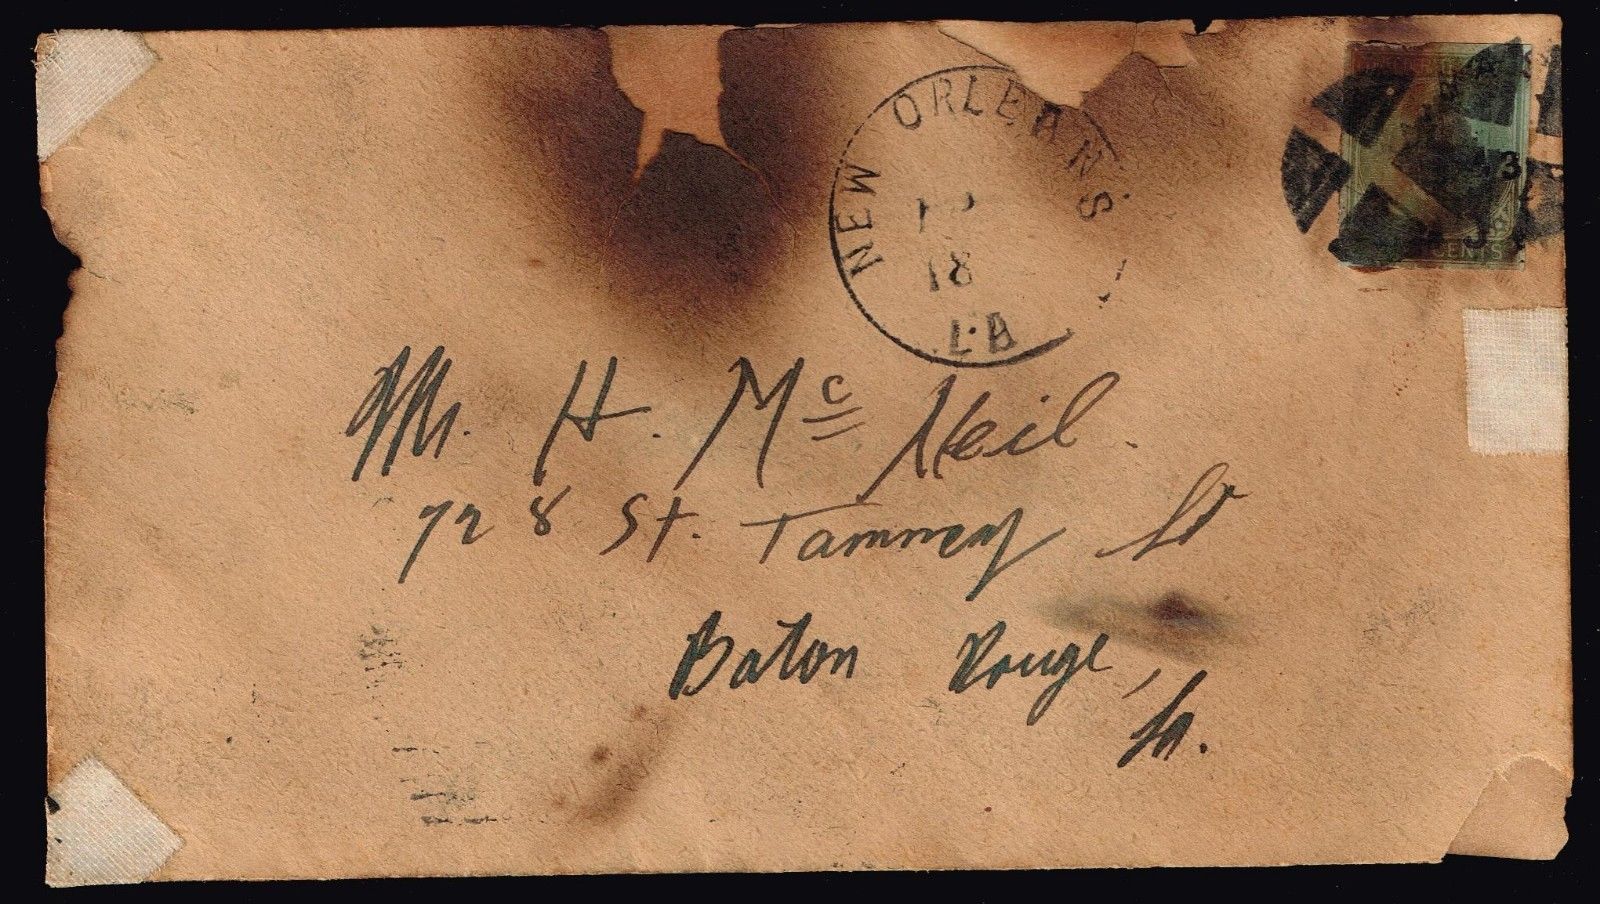 NEW ORLEANS
18
LA
CENTS
Mr. H. Mc Neil.
728 St. Tammey St
Baton Rouge,
La.